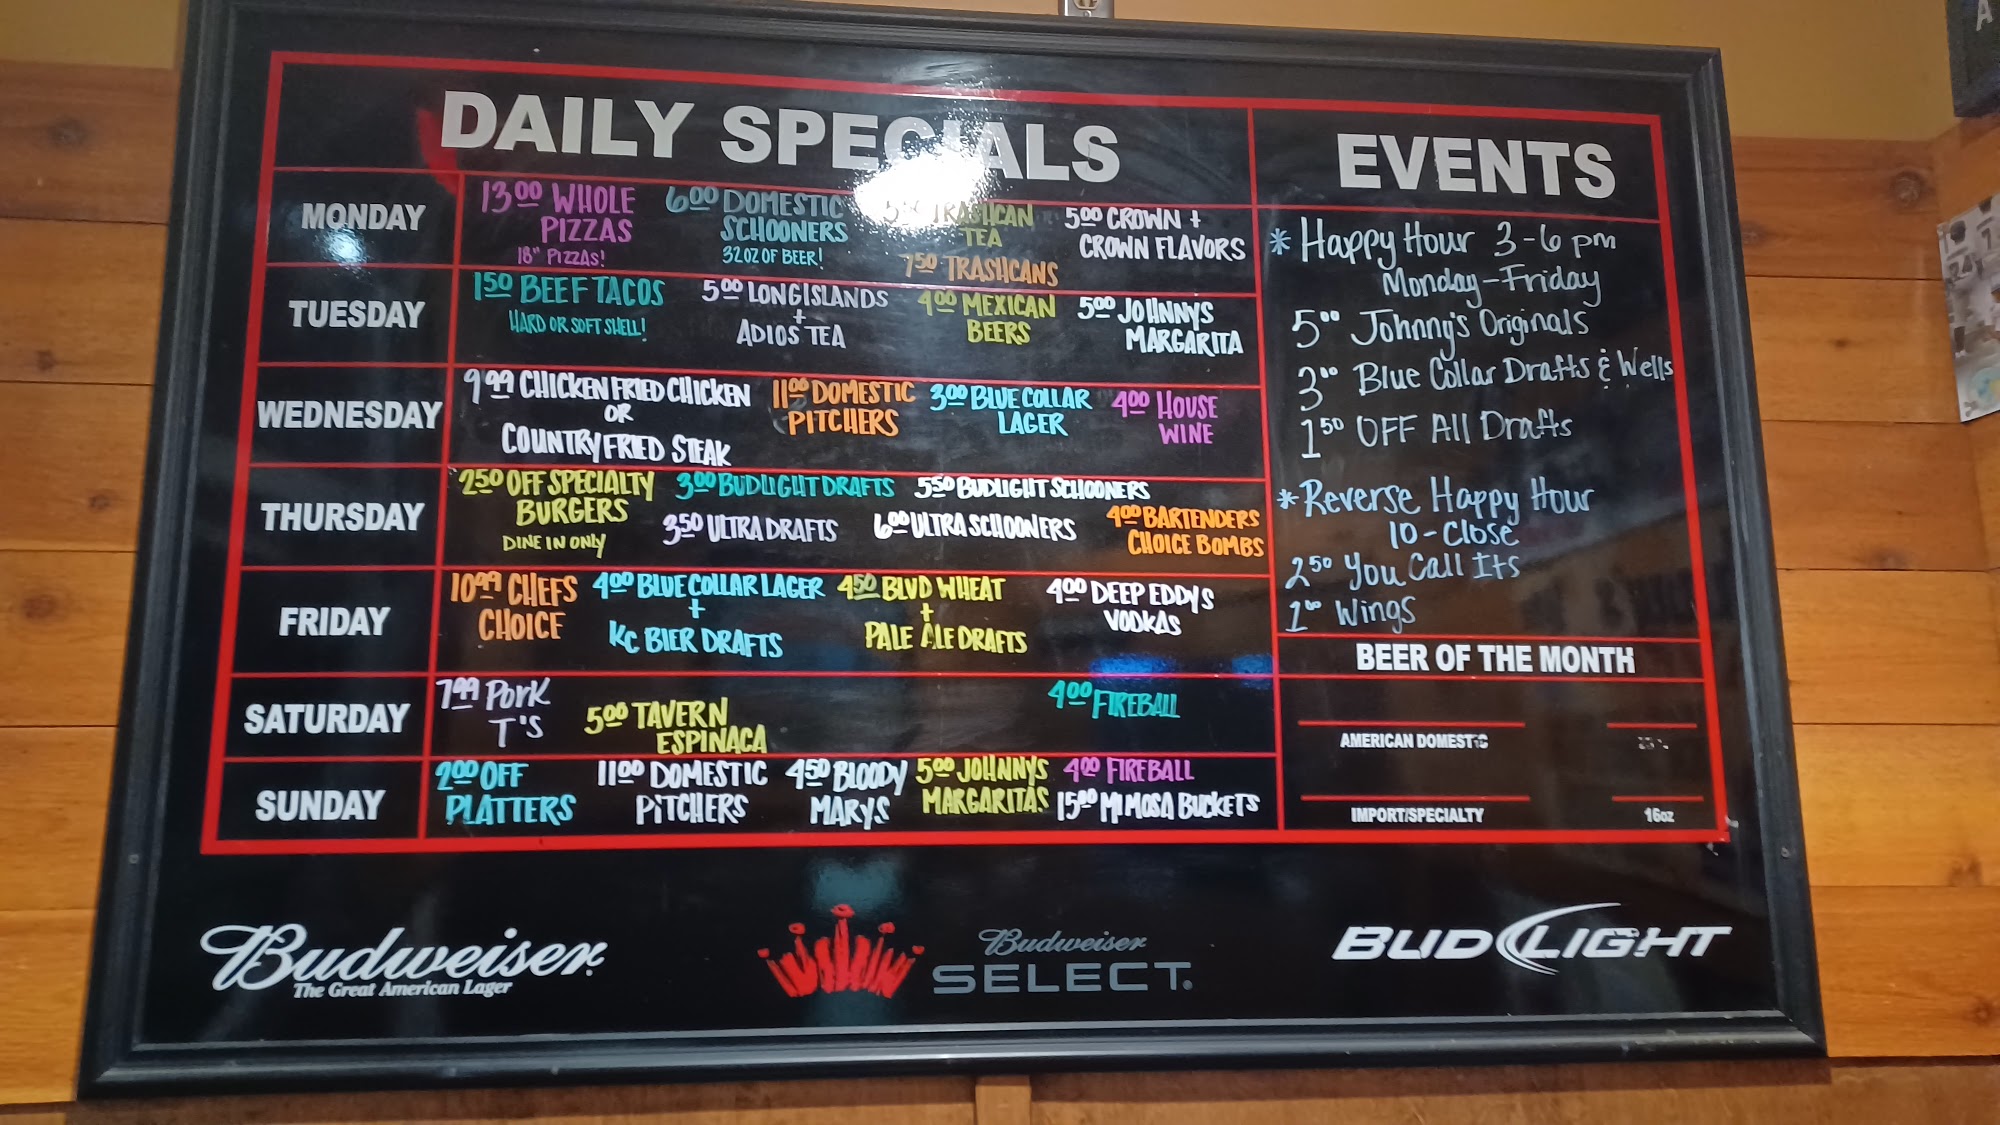 DAILY SPECIALS
MONDAY
13.00 WHOLE
PIZZAS
18" PIZZAS!
6.00 DOMESTIC
SCHOONERS
32OZ OF BEER!
TRASHCAN
TEA
7.50 TRASHCANS
5.00 CROWN +
CROWN FLAVORS
TUESDAY
1.50 BEEF TACOS
HARD OR SOFT SHELL!
5.00 LONG ISLANDS
+
ADIOS TEA
4.00 MEXICAN
BEERS
5.00 JOHNNYS
MARGARITA
WEDNESDAY
9.99 CHICKEN FRIED CHICKEN
OR
COUNTRY FRIED STEAK
11.00 DOMESTIC
PITCHERS
3.00 BLUE COLLAR
LAGER
4.00 HOUSE
WINE
THURSDAY
2.50 OFF SPECIALTY
BURGERS
DINE IN ONLY
3.00 BUDLIGHT DRAFTS
3.50 ULTRA DRAFTS
5.50 BUDLIGHT SCHOONERS
6.00 ULTRA SCHOONERS
4.00 BARTENDERS
CHOICE BOMBS
FRIDAY
10.99 CHEFS
CHOICE
4.00 BLUE COLLAR LAGER
+
KC BIER DRAFTS
4.50 BLVD WHEAT
+
PALE ALE DRAFTS
4.00 DEEP EDDYS
VODKAS
SATURDAY
7.99 PORK
T'S
5.00 TAVERN
ESPINACA
4.00 FIREBALL
SUNDAY
2.00 OFF
PLATTERS
11.00 DOMESTIC
PITCHERS
4.50 BLOODY
MARYS
5.00 JOHNNYS
MARGARITAS
4.00 FIREBALL
15.00 MIMOSA BUCKETS
EVENTS
* Happy Hour 3-6 pm
Monday-Friday
5.00 Johnny's Originals
3.00 Blue Collar Drafts & Wells
1.50 OFF All Drafts
* Reverse Happy Hour
10-Close
2.50 You Call Its
1.00 Wings
BEER OF THE MONTH
AMERICAN DOMESTIC
IMPORT/SPECIALTY
16oz
Budweiser
The Great American Lager
Budweiser
SELECT
BUD LIGHT